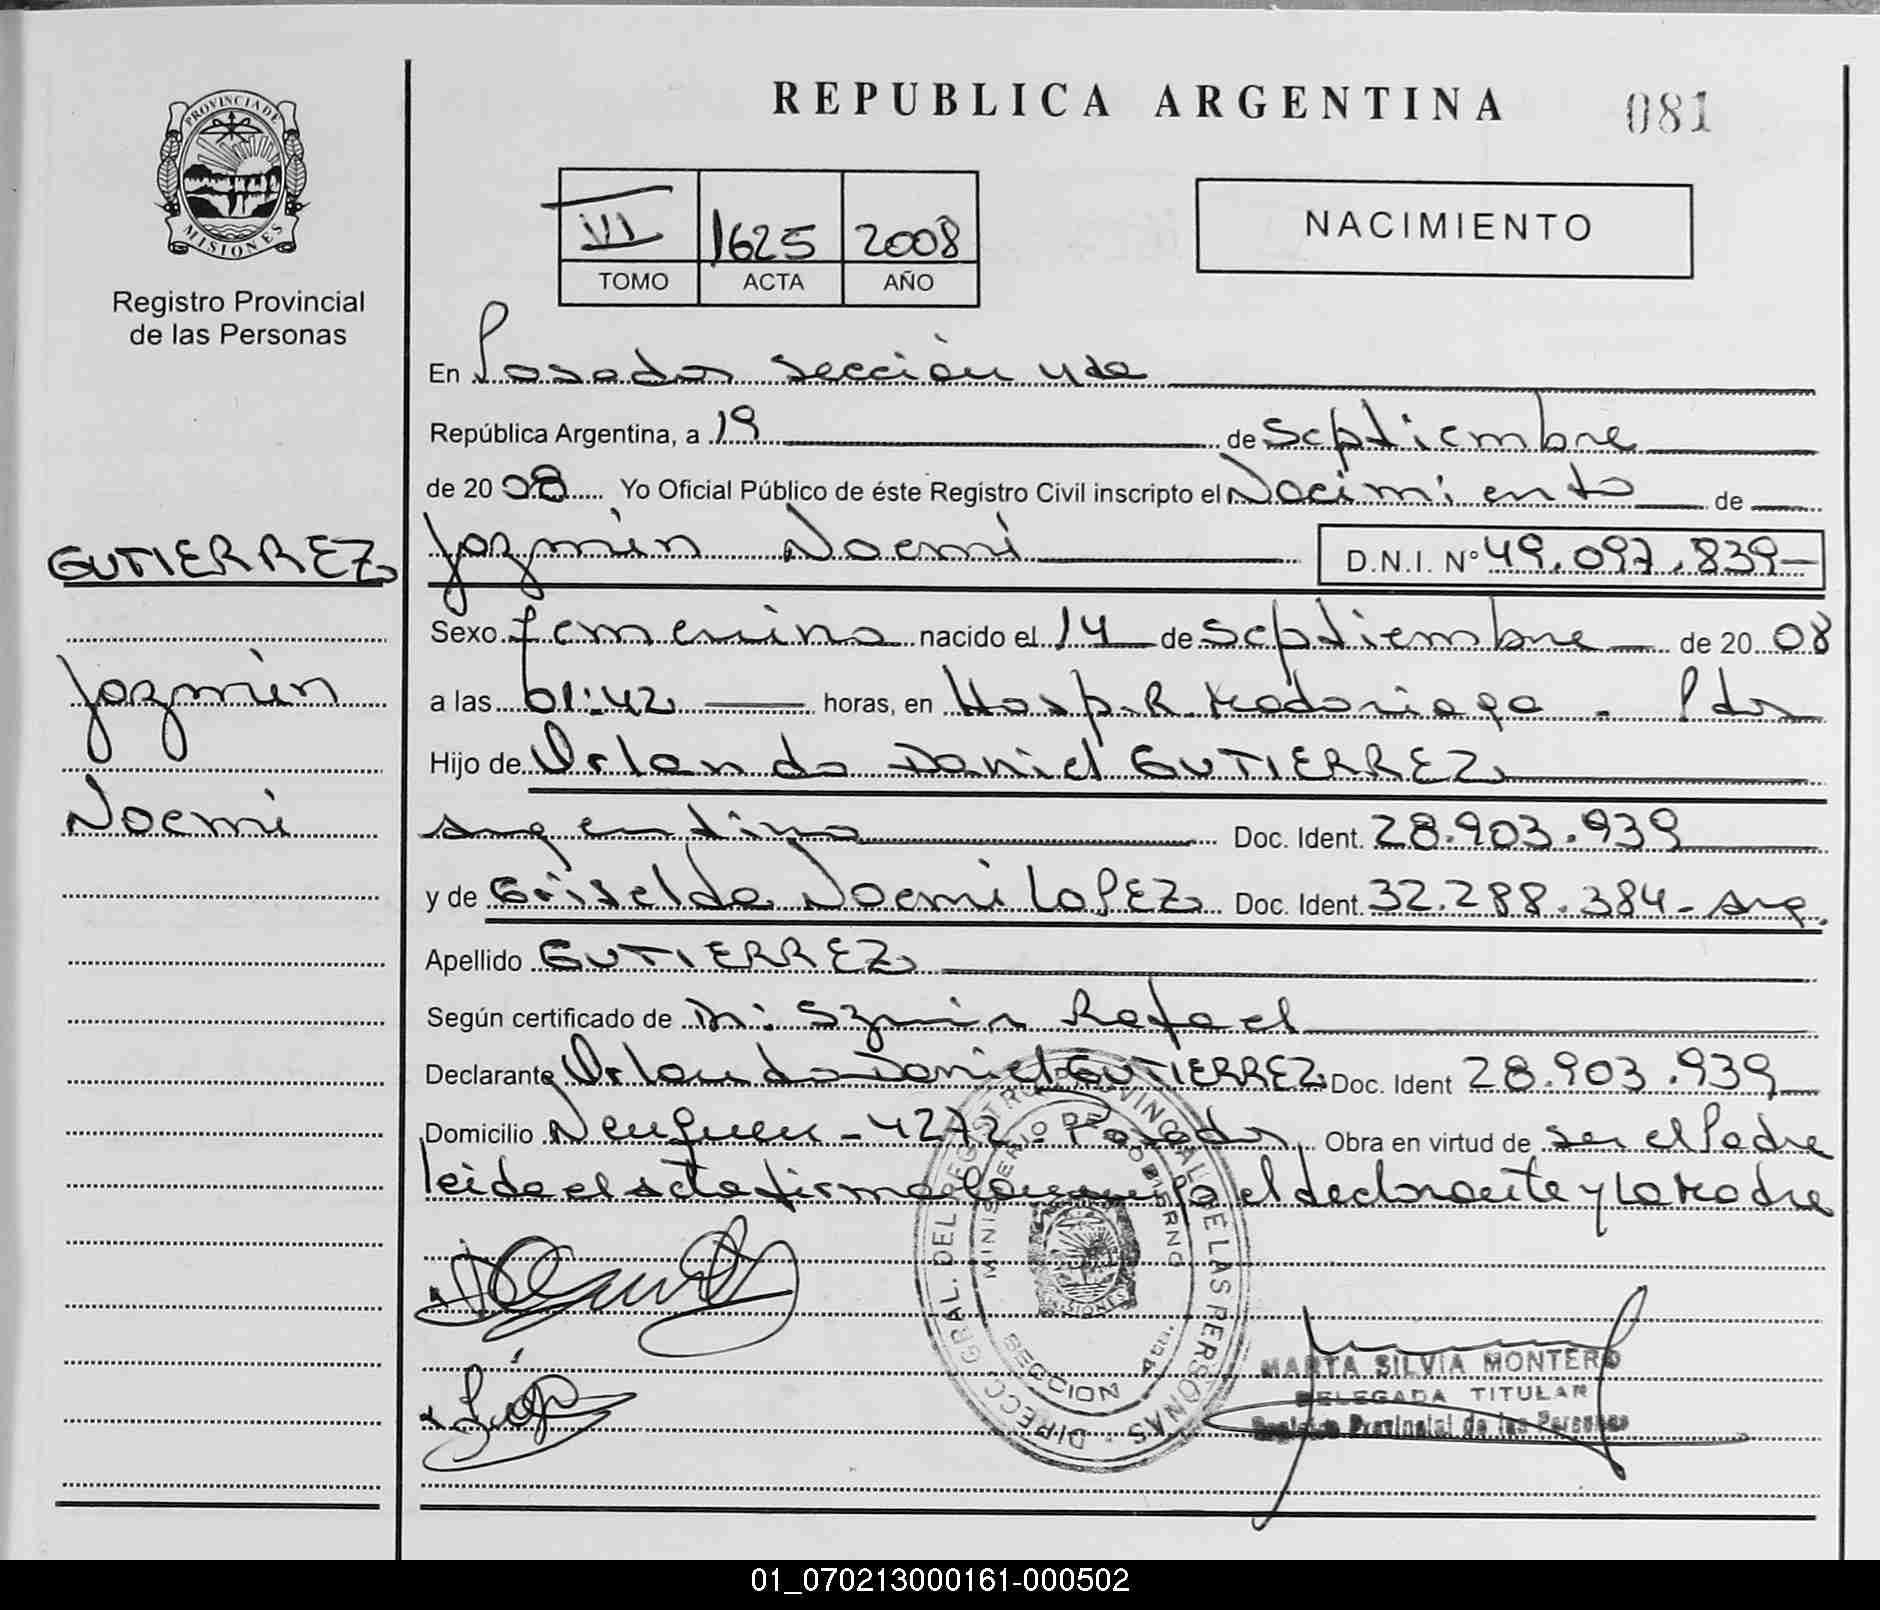 REPUBLICA ARGENTINA 081
PROVINCIA DE MISIONES
Registro Provincial
de las Personas
III 1625 2008
TOMO ACTA AÑO
NACIMIENTO
En Posadas sección 4ta
República Argentina, a 19 de Septiembre
de 2008 Yo Oficial Público de éste Registro Civil inscripto el Nacimiento de
Jazmin Noemi D.N.I. Nº 49.097.839-
Sexo femenino nacido el 14 de Septiembre de 2008
a las 01:42 horas, en Hosp. R. Madariaga - Pdas
Hijo de Orlando Daniel GUTIERREZ
argentino Doc. Ident. 28.903.939
y de Griselda Noemi LOPEZ Doc. Ident. 32.288.384- arg.
Apellido GUTIERREZ
Según certificado de Dr: Rafael
Declarante Orlando Daniel GUTIERREZ Doc. Ident 28.903.939
Domicilio Neuquen - 4272 - Posadas Obra en virtud de ser el Padre
leida el acta firma el declarante y la Madre
GUTIERREZ
Jazmin
Noemi
DIRECC. GRAL. DEL REGISTRO PROVINCIAL DE LAS PERSONAS
MINISTERIO DE GOBIERNO
SECCION 4ta.
MISIONES
MARTA SILVIA MONTERO
DELEGADA TITULAR
Registro Provincial de las Personas
01_070213000161-000502